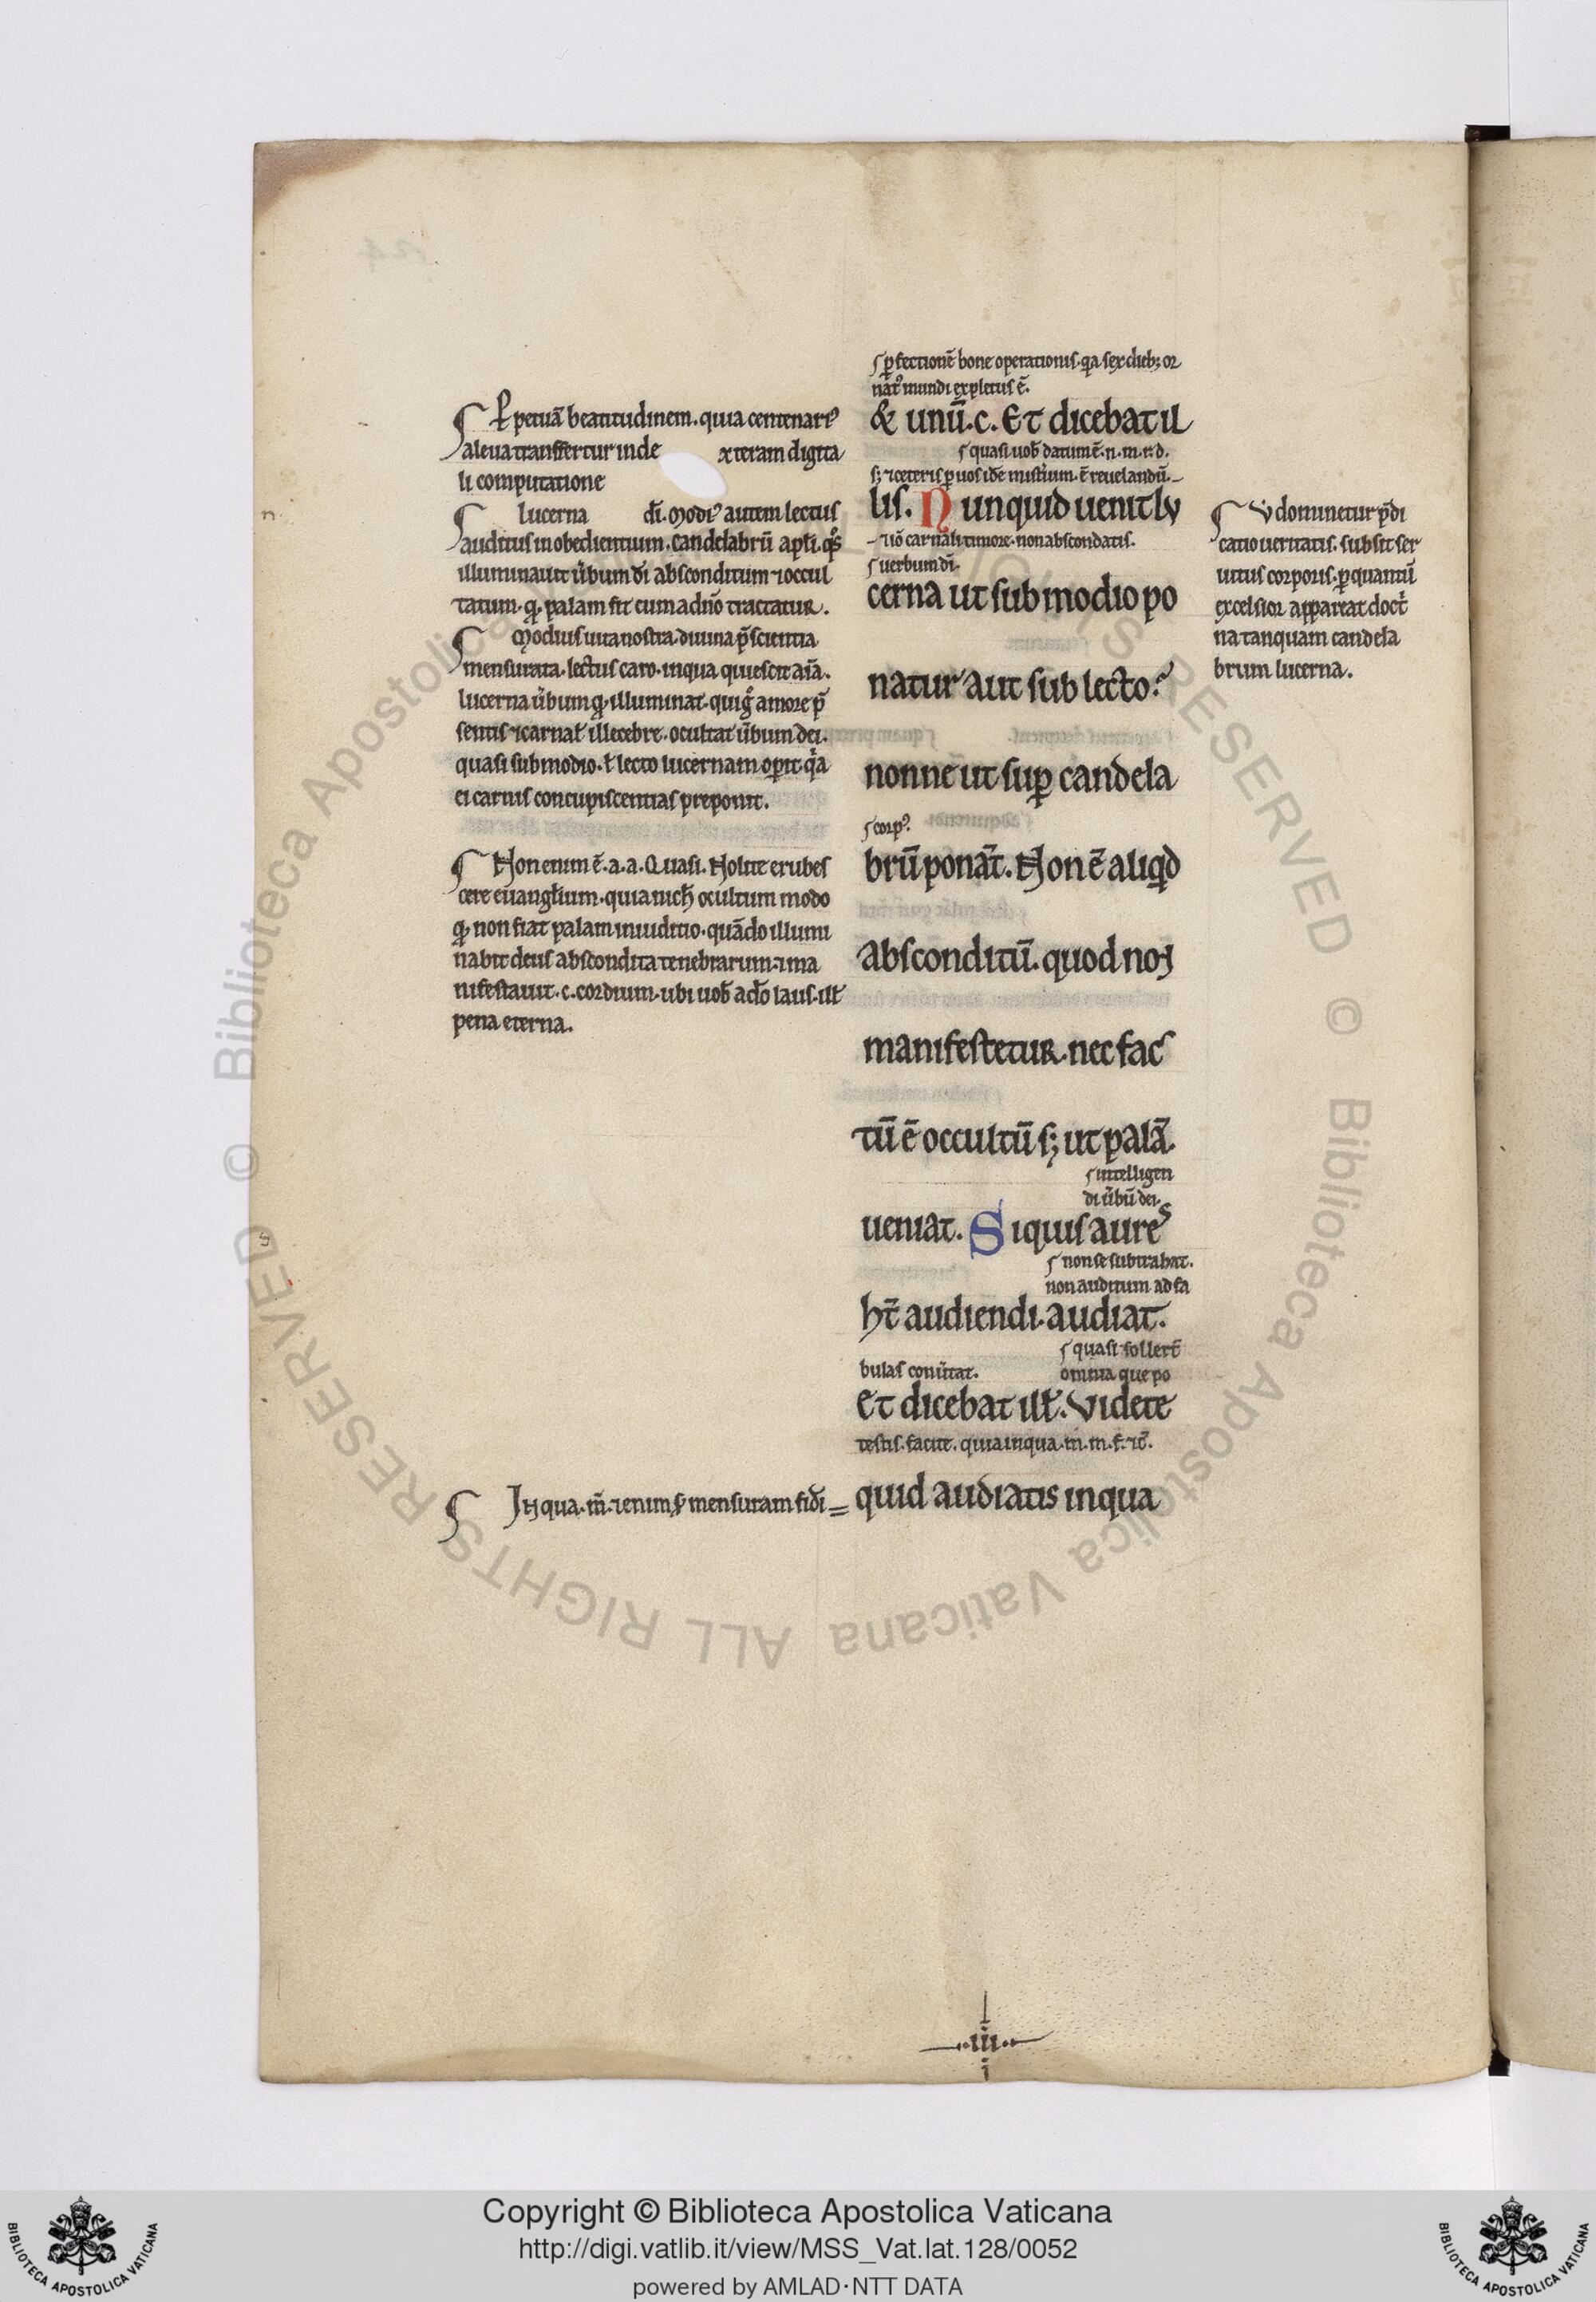 ꝑfectionē bone operationis. qͣa sex dieb; or
natꝰ mundi expletus ē.
& unū. c. Et dicebat il
quasi uob̄ datum ē. n. m. r. d.
s; ⁊ ceteris ꝑ uos idē misťium. ē reuelandū.
lis. Nunquid uenit lu
⁊ iō carnali timore. non abscondatis.
uerbum dī.
cerna ut sub modio po
natur aut sub lecto?
nonne ut suꝑ candela
corpꝰ.
brū ponat̄. Non ē aliqd
absconditū. quod non
manifestetur. nec fac
tū ē occultū s; ut palā.
intelligen
di ūbū dei.
ueniat. Si quis aures
non se subtrahat.
non auditum ad fa
ht̄ audiendi. audiat.
quasi sollert̄
bulas conūtat. omnia que po
Et dicebat ill̄. Videte
testis. facite. quia in qua. m. m. f. ⁊c̄.
quid audiatis in qua
Ꝑpetuā beatitudinem. quia centenariꝰ
a leua transfertur in de xteram digita
li computatione
lucerna dī. Modiꝰ autem lectus
auditus inobedientium. candelabrū apl̄i. qͦs
illuminauit ūbum dī absconditum ⁊ occul
tatum. qͩ palam fit cum ad nō tractatur.
Modius uita nostra. diuina p̄scientia
mensurata. lectus caro. in qua quiescit aīa.
lucerna ūbum qͩ illuminat. qui gͦ amore p̄
sentis ⁊ carnal̄ illecebre. ocultat ūbum dei.
quasi sub modio. ł lecto lucernam oꝑit qͥa
ei carnis concupiscentias preponit.
Non enim ē. a. a. Quasi. Nolite erubes
cere euangl̄ium. quia nich̄ ocultum modo
qͩ non fiat palam in iuditio. quādo illumi
nabit deus abscondita tenebrarum. ⁊ ma
nifestauit. c. cordium. ubi uob̄ a dō laus. ill̄
pena eterna.
In qua. m̄. ⁊ enim s̄ mensuram fidī
Vt dominetur p̄di
catio ueritatis. subsit ser
uitus corporis. ꝑ quantū
excelsior appareat doct̄
na tanquam candela
brum lucerna.
n
s
.iii.
Copyright © Biblioteca Apostolica Vaticana
http://digi.vatlib.it/view/MSS_Vat.lat.128/0052
powered by AMLAD·NTT DATA
© Biblioteca Apostolica Vaticana ALL RIGHTS RESERVED
BIBLIOTECA APOSTOLICA VATICANA
BIBLIOTECA APOSTOLICA VATICANA